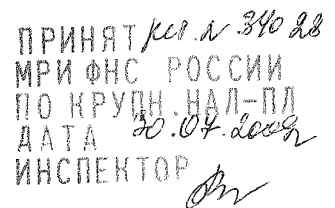 ПРИНЯТ рег. N 34028
МРИ ФНС РОССИИ
ПО КРУПН. НАЛ-ПЛ
ДАТА 30.07.2009
ИНСПЕКТОР